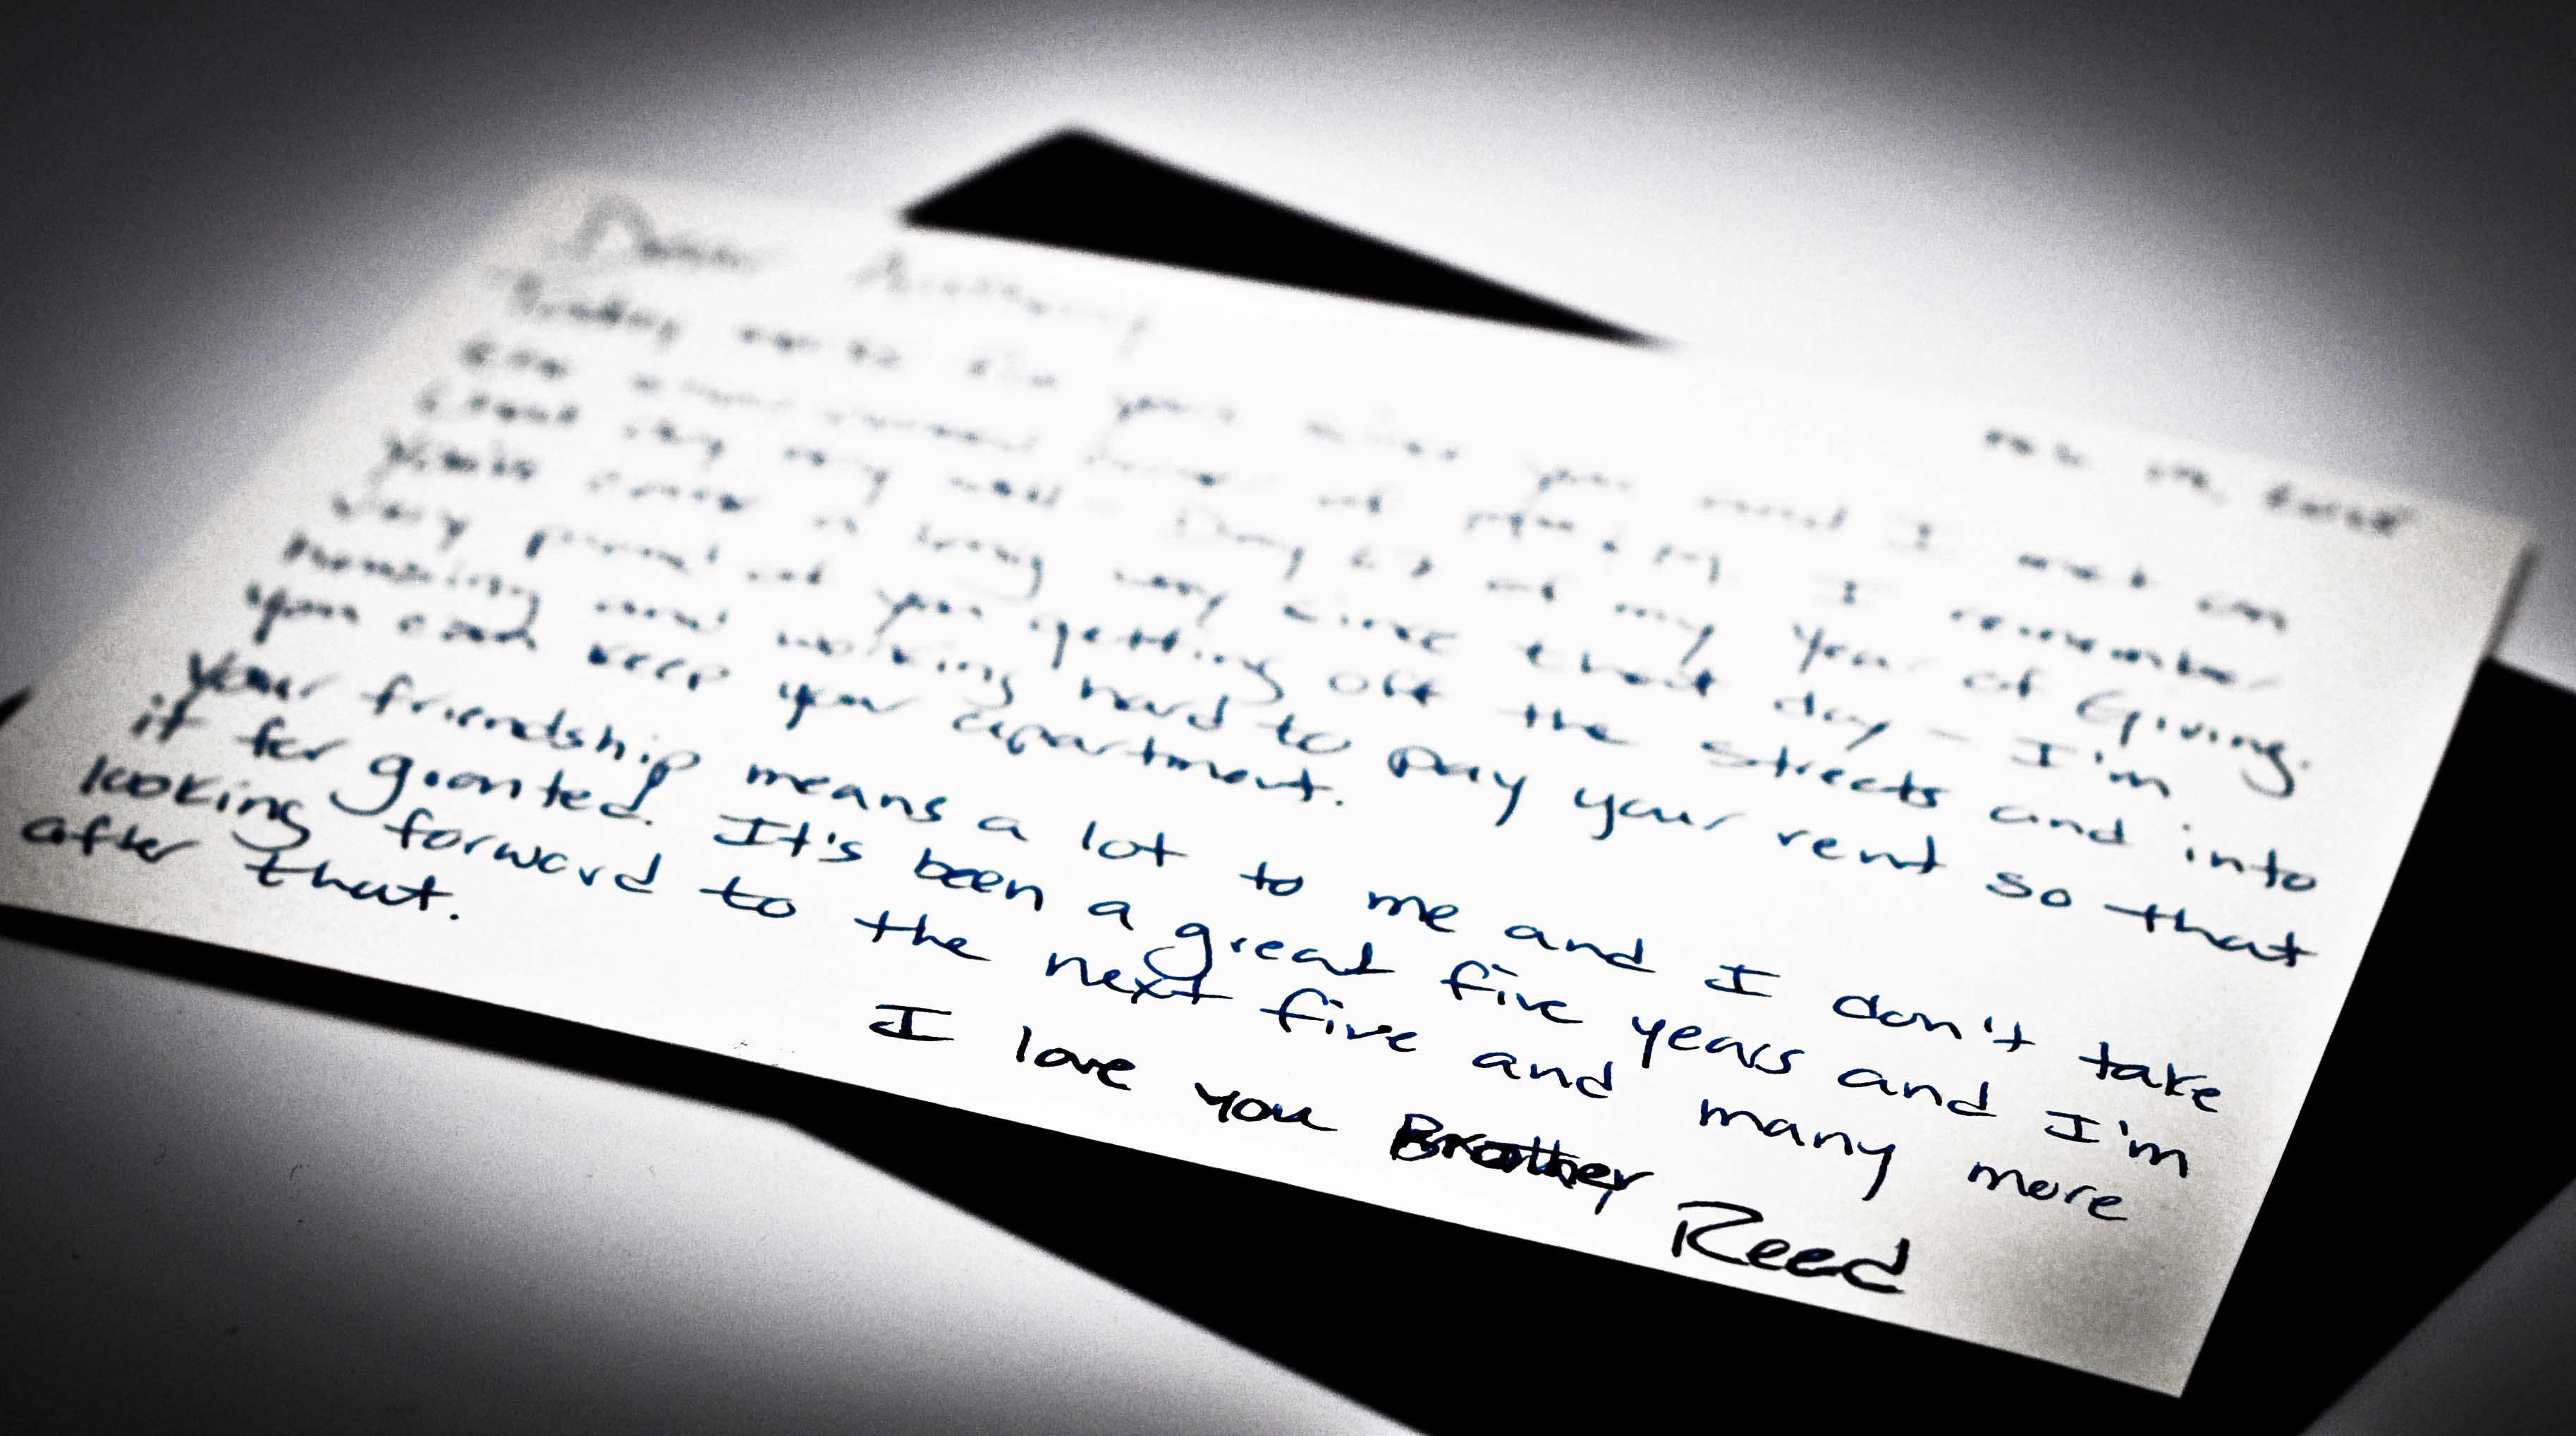 Dear
Today years since you and I met on
I remember
that day very well - Day of my Year of Giving.
You've come a long way since that day - I'm
very proud of you getting off the streets and into
housing and working hard to pay your rent so that
you can keep your apartment.
Your friendship means a lot to me and I don't take
it for granted. It's been a great five years and I'm
looking forward to the next five and many more
after that.
I love you Brother
Reed